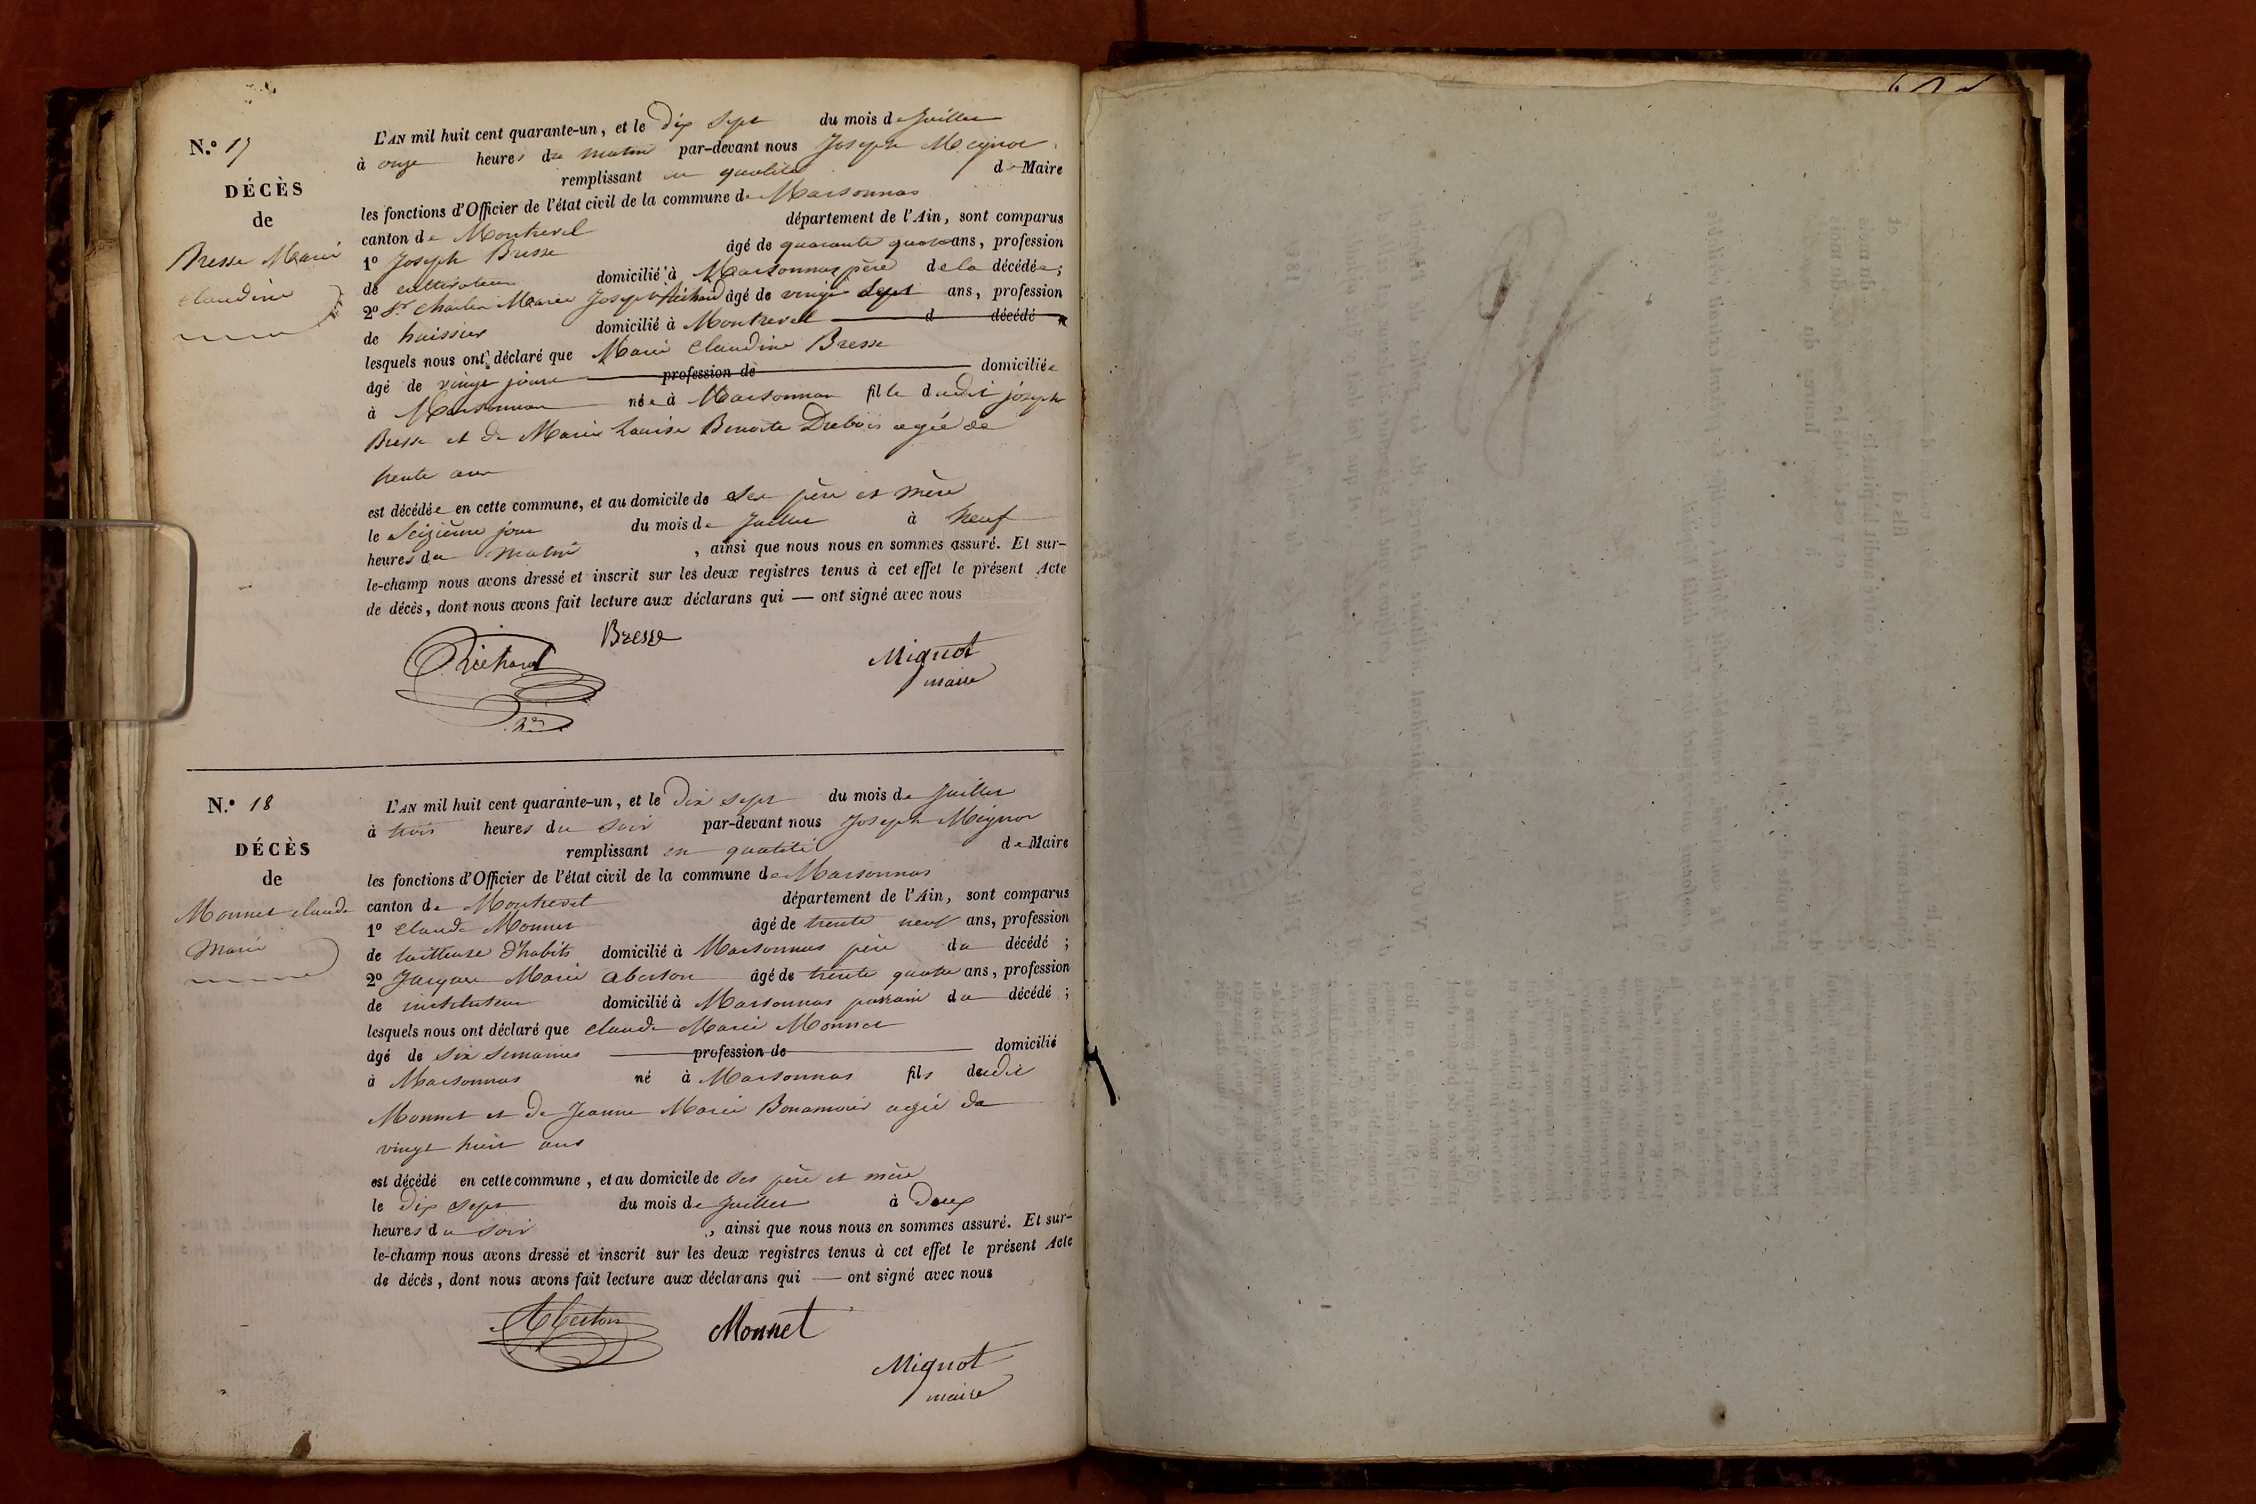 N.º 17
DÉCÈS
de
Bresse Marie
Claudine
L'AN mil huit cent quarante-un, et le dix sept du mois de Juillet
à onze heures du matin par-devant nous Joseph Mignot
remplissant en qualité de Maire
les fonctions d'Officier de l'état civil de la commune de Marsonnas
canton de Montrevel département de l'Ain, sont comparus
1º Joseph Bresse âgé de quarante quatre ans, profession
de cultivateur domicilié à Marsonnas père de la décédée;
2º Sr Charles Marie Joseph Richard âgé de vingt sept ans, profession
de huissier domicilié à Montrevel d décédé
lesquels nous ont déclaré que Marie Claudine Bresse
âgé de vingt jours profession de domiciliée
à Marsonnas née à Marsonnas fille dudit joseph
Bresse et de Marie Louise Benoite Drebois agée de
trente ans
est décédée en cette commune, et au domicile de ses père et mère
le seizieme jour du mois de Juillet à neuf
heures du matin , ainsi que nous nous en sommes assuré. Et sur-
le-champ nous avons dressé et inscrit sur les deux registres tenus à cet effet le présent Acte
de décès, dont nous avons fait lecture aux déclarans qui — ont signé avec nous
Bresse
Richard
Mignot
maire
N.º 18
DÉCÈS
de
Monnet claude
Marie
L'AN mil huit cent quarante-un, et le dix sept du mois de Juillet
à trois heures du soir par-devant nous Joseph Mignot
remplissant en qualité de Maire
les fonctions d'Officier de l'état civil de la commune de Marsonnas
canton de Montrevel département de l'Ain, sont comparus
1º Claude Monnet âgé de trente neuf ans, profession
de tailleuse d'habits domicilié à Marsonnas père du décédé ;
2º Jacques Marie Aberton âgé de trente quatre ans, profession
de instituteur domicilié à Marsonnas parrain du décédé ;
lesquels nous ont déclaré que Claude Marie Monnet
âgé de six semaines profession de domicilié
à Marsonnas né à Marsonnas fils dudit
Monnet et de Jeanne Marie Bonamour agée de
vingt huit ans
est décédé en cette commune, et au domicile de ses père et mère
le dix sept du mois de Juillet à deux
heures du soir , ainsi que nous nous en sommes assuré. Et sur-
le-champ nous avons dressé et inscrit sur les deux registres tenus à cet effet le présent Acte
de décès, dont nous avons fait lecture aux déclarans qui — ont signé avec nous
Aberton Monnet
Mignot
maire